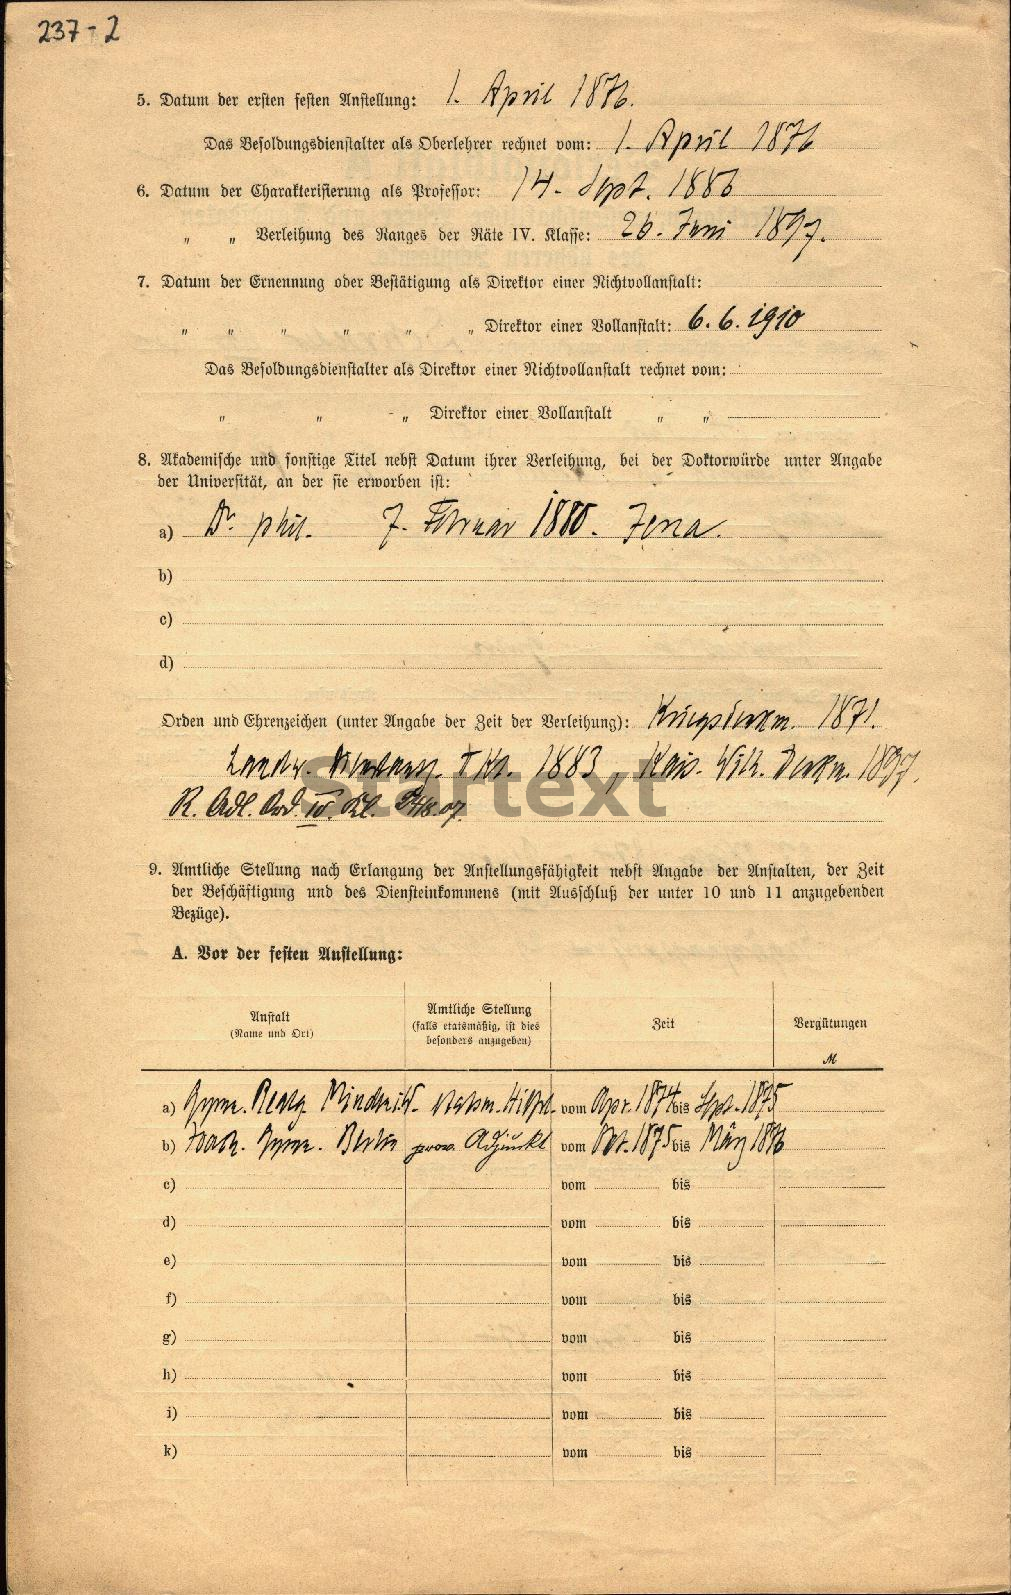 237-2
5. Datum der ersten festen Anstellung: 1. April 1876.
Das Besoldungsdienstalter als Oberlehrer rechnet vom: 1. April 1876
6. Datum der Charakterisierung als Professor: 14. Sept. 1886
„ „ Verleihung des Ranges der Räte IV. Klasse: 26. Juni 1897.
7. Datum der Ernennung oder Bestätigung als Direktor einer Nichtvollanstalt:
„ „ „ „ „ „ Direktor einer Vollanstalt: 6. 6. 1910
Das Besoldungsdienstalter als Direktor einer Nichtvollanstalt rechnet vom:
„ „ „ Direktor einer Vollanstalt „ „
8. Akademische und sonstige Titel nebst Datum ihrer Verleihung, bei der Doktorwürde unter Angabe
der Universität, an der sie erworben ist:
a) Dr. phil. 7. Februar 1880. Jena.
b)
c)
d)
Orden und Ehrenzeichen (unter Angabe der Zeit der Verleihung): Kriegsdenkm. 1871.
Landw. I Kl. 1883, Kais. Wilh. Denkm. 1897.
R. Adl. Ord. IV. Kl. 07.
Startext
9. Amtliche Stellung nach Erlangung der Anstellungsfähigkeit nebst Angabe der Anstalten, der Zeit
der Beschäftigung und des Diensteinkommens (mit Ausschluß der unter 10 und 11 anzugebenden
Bezüge).
A. Vor der festen Anstellung:
Anstalt
(Name und Ort)
Amtliche Stellung
(falls etatsmäßig, ist dies
besonders anzugeben)
Zeit
Vergütungen
M
a) Gymn. Realg. Minden i/W. Hilfsl. vom Apr. 1874 bis Sept. 1875
b) Joach. Gymn. Berlin prov. Adjunkt vom Okt. 1875 bis März 1876
c) vom bis
d) vom bis
e) vom bis
f) vom bis
g) vom bis
h) vom bis
i) vom bis
k) vom bis